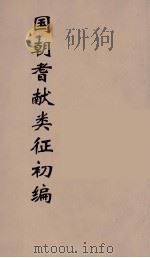 国朝耆献类征初编
www.toutu.info